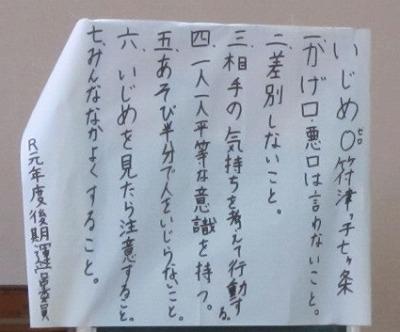 いじめ0符津ッ子七ヶ条
ゼロ
一、かげ口・悪口は言わないこと。
二、差別しないこと。
三、相手の気持ちを考えて行動する。
四、一人一人平等な意識を持つ。
五、あそび半分で人をいじらないこと。
六、いじめを見たら注意すること。
七、みんななかよくすること。
R元年度後期運営委員